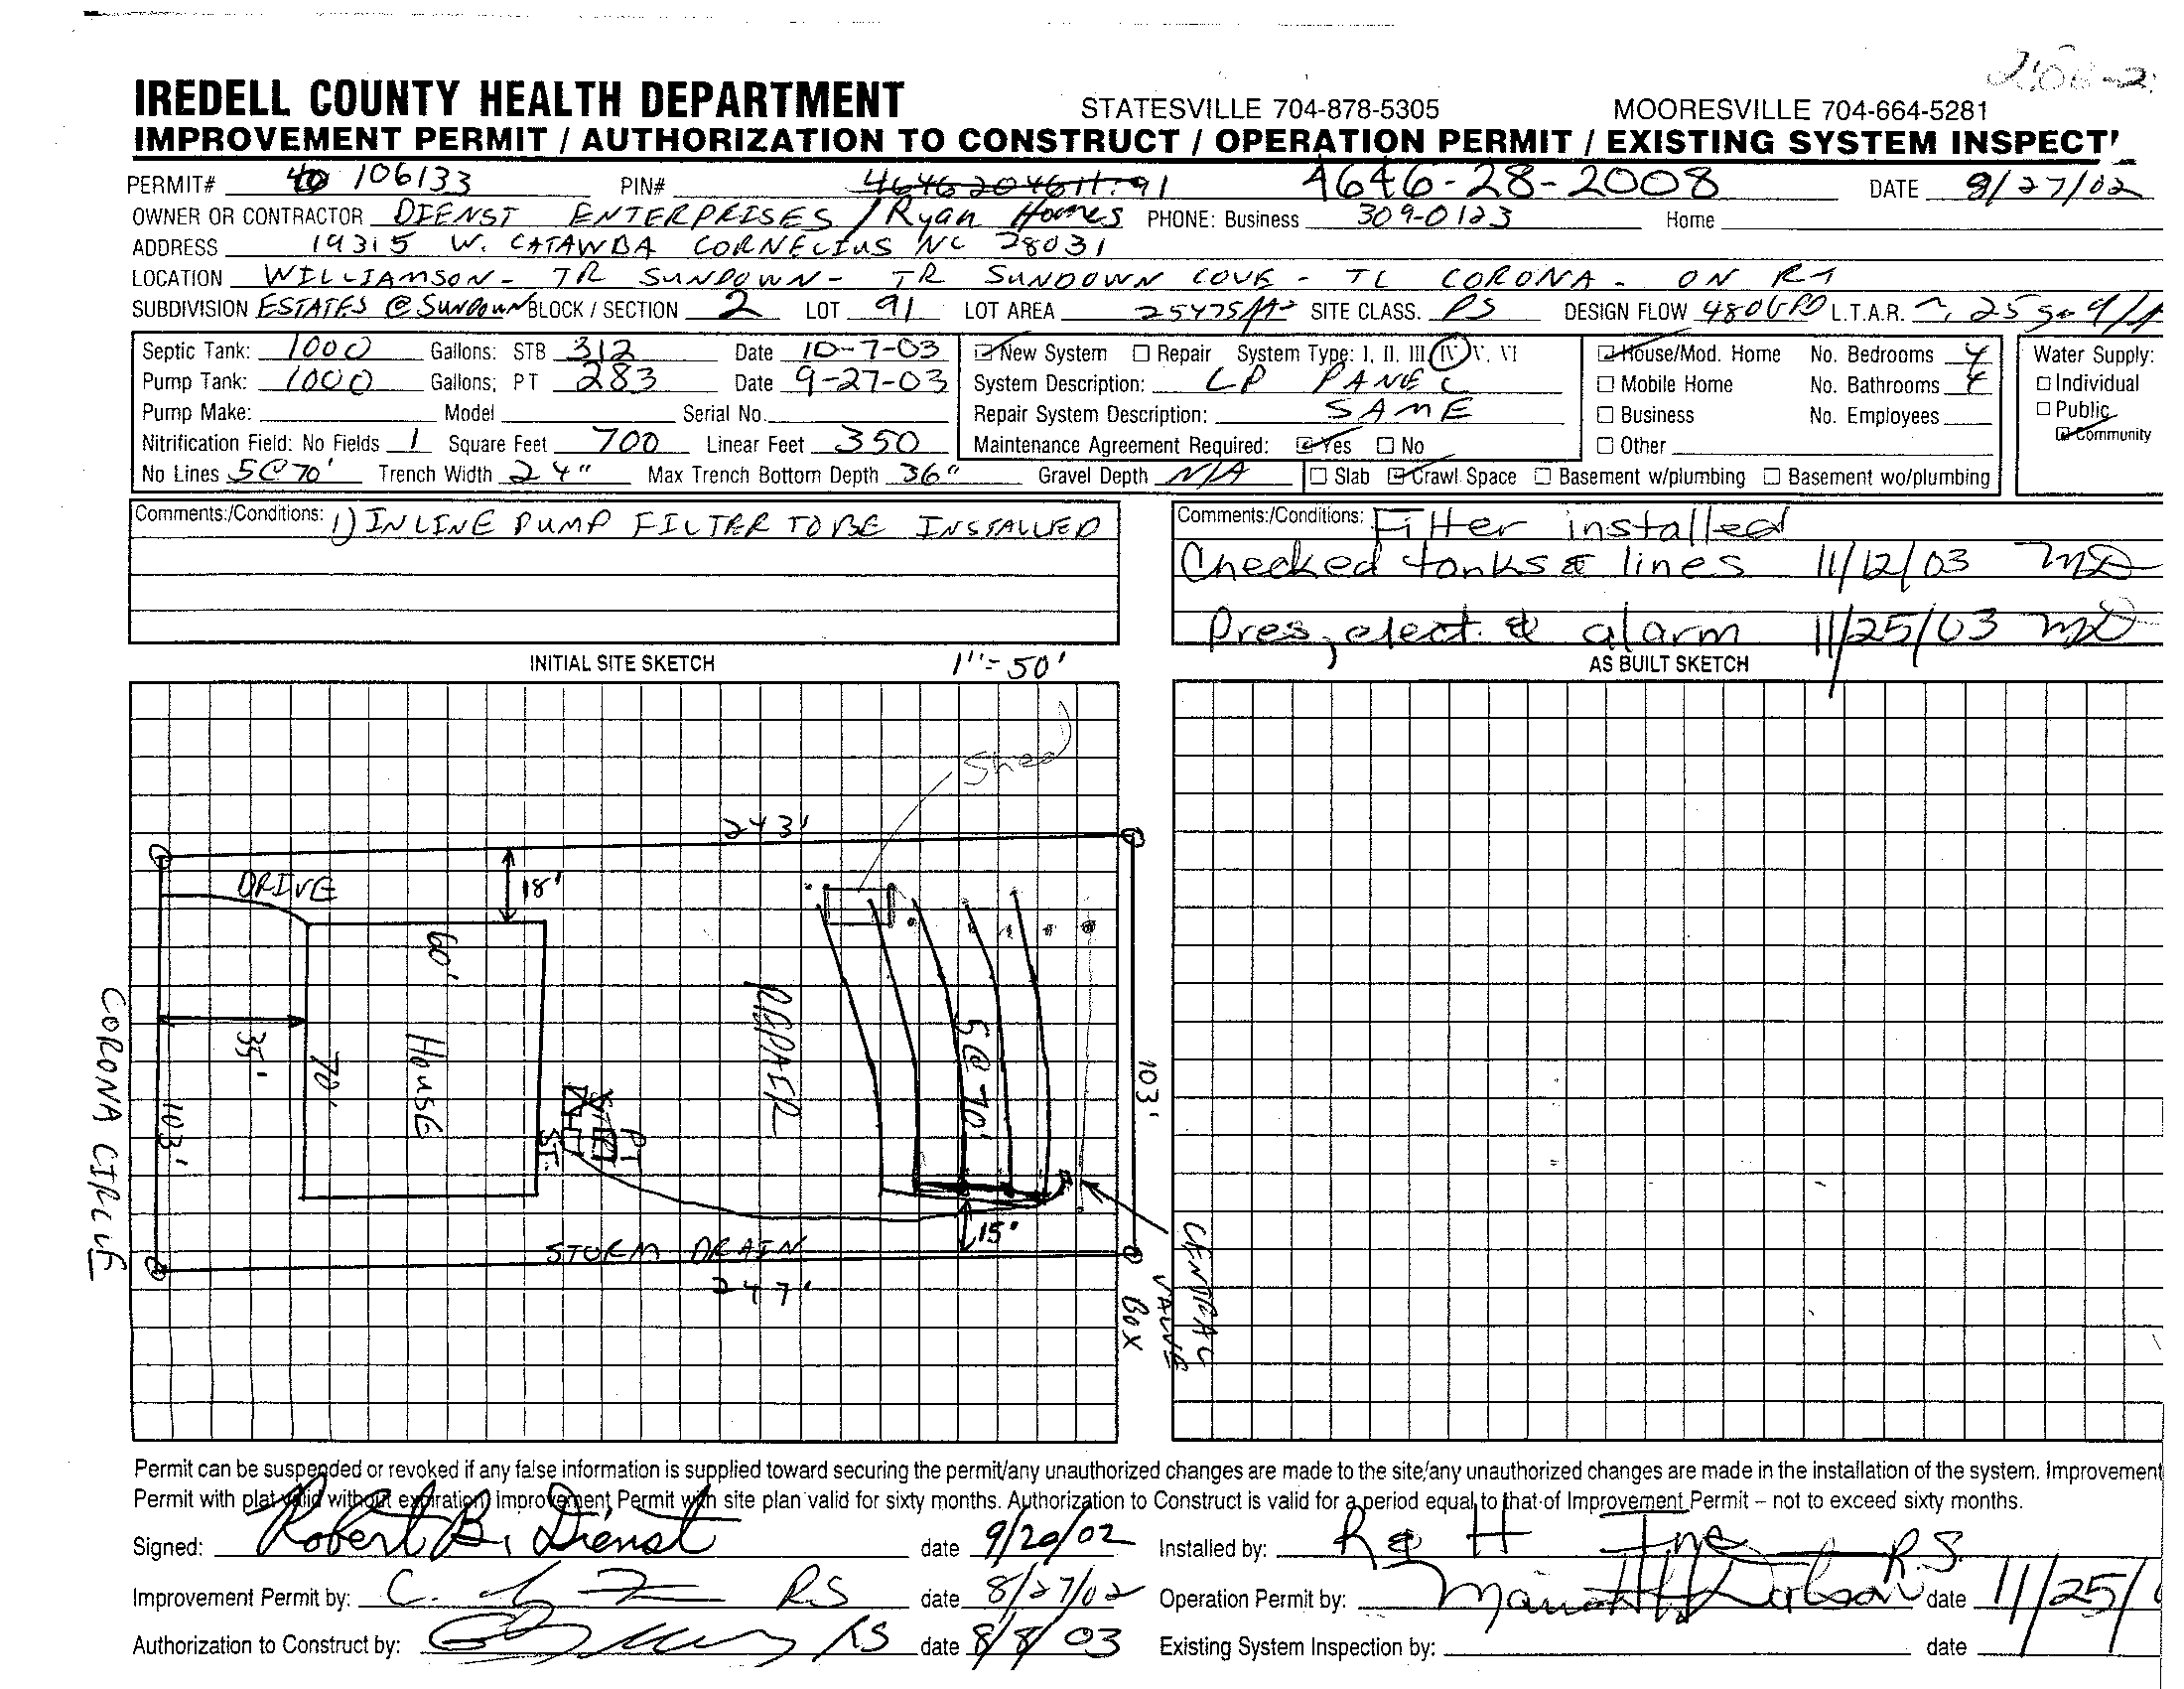 IREDELL COUNTY HEALTH DEPARTMENT STATESVILLE 704-878-5305 MOORESVILLE 704-664-5281
IMPROVEMENT PERMIT / AUTHORIZATION TO CONSTRUCT / OPERATION PERMIT / EXISTING SYSTEM INSPECT
PERMIT# 106133 PIN# 4646-28-2008 DATE 8/27/02
OWNER OR CONTRACTOR DIENST ENTERPRISES / Ryan Homes PHONE: Business 309-0123 Home
ADDRESS 19315 W. CATAWBA CORNELIUS NC 28031
LOCATION WILLIAMSON - TR SUNDOWN - TR SUNDOWN COVE - TL CORONA - ON RT
SUBDIVISION ESTATES @ SUNDOWN BLOCK / SECTION 2 LOT 91 LOT AREA 25475 ft² SITE CLASS. PS DESIGN FLOW 480 GPD L.T.A.R. .25
Septic Tank: 1000 Gallons: STB 312 Date 10-7-03 New System Repair System Type: I, II, III, IV, V, VI House/Mod. Home No. Bedrooms 4 Water Supply:
Pump Tank: 1000 Gallons; PT 283 Date 9-27-03 System Description: LP PANEL Mobile Home No. Bathrooms 4 Individual
Pump Make: Model Serial No. Repair System Description: SAME Business No. Employees Public
Nitrification Field: No Fields 1 Square Feet 700 Linear Feet 350 Maintenance Agreement Required: Yes No Other Community
No Lines 5@70' Trench Width 24" Max Trench Bottom Depth 36" Gravel Depth N/A Slab Crawl Space Basement w/plumbing Basement wo/plumbing
Comments:/Conditions: 1) INLINE PUMP FILTER TO BE INSTALLED
Comments:/Conditions: Filter installed
Checked tanks & lines 11/12/03 MD
Pres, elect. & alarm 11/25/03 MD
INITIAL SITE SKETCH 1"=50'
AS BUILT SKETCH
Shed
243'
DRIVE
18'
60'
35'
70'
HOUSE
REPAIR
5@70'
103'
CORONA CIRCLE
103'
ST.
PT
15'
STORM DRAIN
247'
CENTRAL
VALVE
BOX
Permit can be suspended or revoked if any false information is supplied toward securing the permit/any unauthorized changes are made to the site/any unauthorized changes are made in the installation of the system. Improvement
Permit with plat valid without expiration) Improvement Permit with site plan valid for sixty months. Authorization to Construct is valid for a period equal to that of Improvement Permit – not to exceed sixty months.
Signed: Robert B. Dienst date 9/20/02 Installed by: R & H Inc
Improvement Permit by: C. RS date 8/27/02 Operation Permit by: R.S. date 11/25/
Authorization to Construct by: RS date 8/8/03 Existing System Inspection by: date